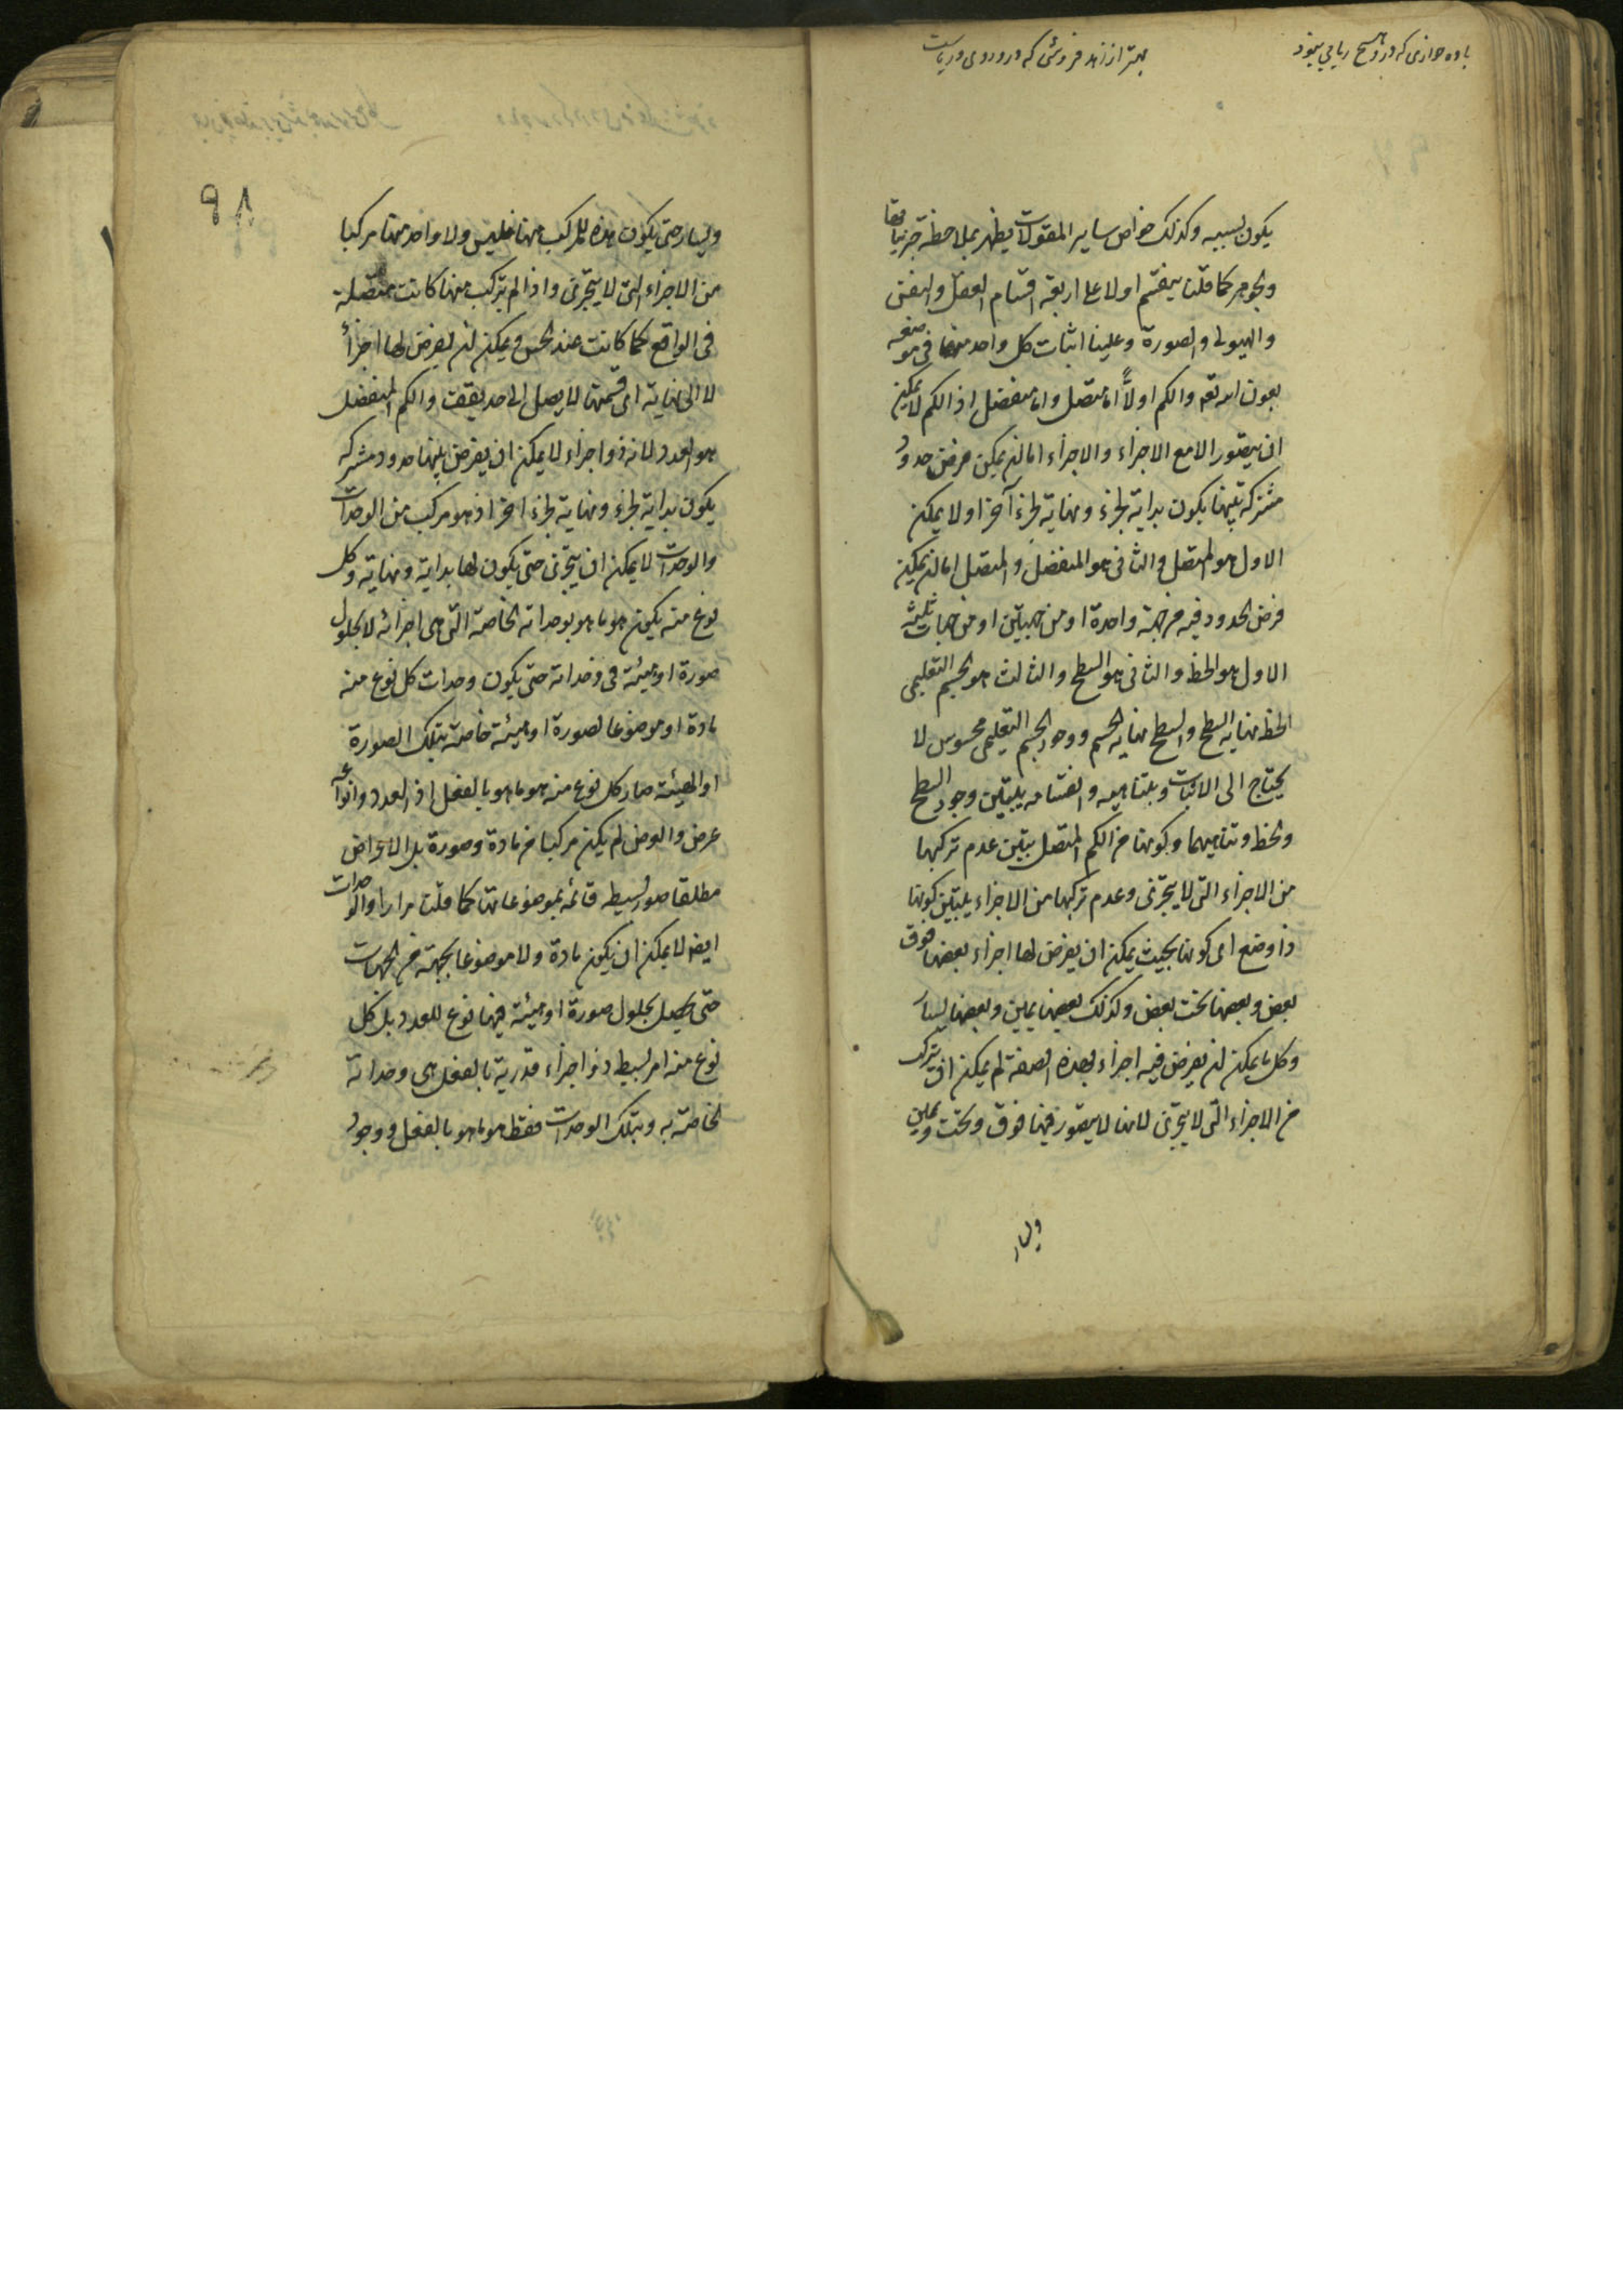 باده خواری که درو هیچ ریایی نبود
بهتر از زهد فروشی که درو روی و ریاست
يكون بسببه وكذلك خواص ساير المقولات يظهر بملاحظة جزئياتها
والجوهر كما قلنا ينقسم اولا على اربعة اقسام العقل والنفس
والهيولى والصورة وعلينا اثبات كل واحد منها فى موضعه
بعون الله تعه والكم اولاً اما متصل واما منفصل اذ الكم لا يمكن
ان يتصور الا مع الاجزاء والاجزاء اما ان يمكن فرض حدود
مشتركة بينها يكون بداية لجزء ونهاية لجزء آخر او لا يمكن
الاول هو المتصل والثانى هو المنفصل والمتصل اما ان يمكن
فرض الحدود فيه من جهة واحدة او من جهتين او من جهات ثلثة
الاول هو الخط والثانى هو السطح والثالث هو الجسم التعليمى
الخط نهاية السطح والسطح نهاية الجسم ووجود الجسم التعليمى محسوس لا
يحتاج الى الاثبات وبتناهيه وانقسامه يتبين وجود السطح
والخط وتناهيهما وبكونها من الكم المتصل يتبين عدم تركبها
من الاجزاء التى لا يتجزى وعدم تركبها من الاجزاء يتبين كونها
ذا وضع اى كونها بحيث يمكن ان يفرض لها اجزاء بعضها فوق
بعض وبعضها تحت بعض وكذلك بعضها يمين وبعضها يسار
وكل ما يمكن ان يفرض فيه اجزاء بهذه الصفة لم يمكن ان يتركب
من الاجزاء التى لا يتجزى لانها لا يتصور فيها فوق وتحت ويمين
ويسار
٩٨
ويسار حتى يكون هذه المركب منها فليس ولا واحد منها مركبا
من الاجزاء التى لا يتجزى واذا لم يتركب منها كانت متصلة
فى الواقع كما كانت عند الحس ويمكن ان يفرض لها اجزاءً
لا الى نهاية اى قسمتها لا يصل الى حد يقف والكم المنفصل
هو العدد لانه ذو اجزاء لا يمكن ان يفرض بينها حدود مشتركه
يكون بداية لجزء ونهاية لجزء اخر اذ هو مركب من الوحدات
والوحدات لا يمكن ان يتجزى حتى يكون لها بداية ونهاية وكل
نوع منه يكون هو ما هو بوحداته الخاصة التى هى اجزائه لا بحلول
صورة او هيئة فى وحداته حتى يكون وحدات كل نوع منه
مادة او موضوعا لصورة او هيئة خاصة بتلك الصورة
او الهيئة صار كل نوع منه هو ما هو بالفعل اذ العدد وانواعه
عرض والعرض لم يكن مركبا من مادة وصورة بل الاعراض
مطلقا صور بسيطه قائمه بموضوعاتها كما قلنا مرارا والوحدات
ايض لا يمكن ان يكون مادة ولا موضوعا بجهة من الجهات
حتى يحصل بحلول صورة او هيئة فيها نوع للعدد بل كل
نوع منه امر بسيط ذو اجزاء قدرية بالفعل هى وحداته
الخاصة به وبتلك الوحدات فقط هو ما هو بالفعل ووجود